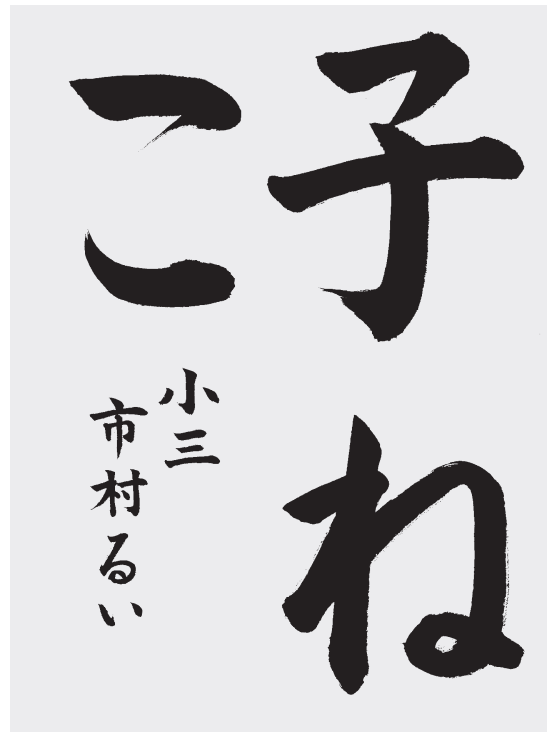 子ね
こ
小三
市村るい